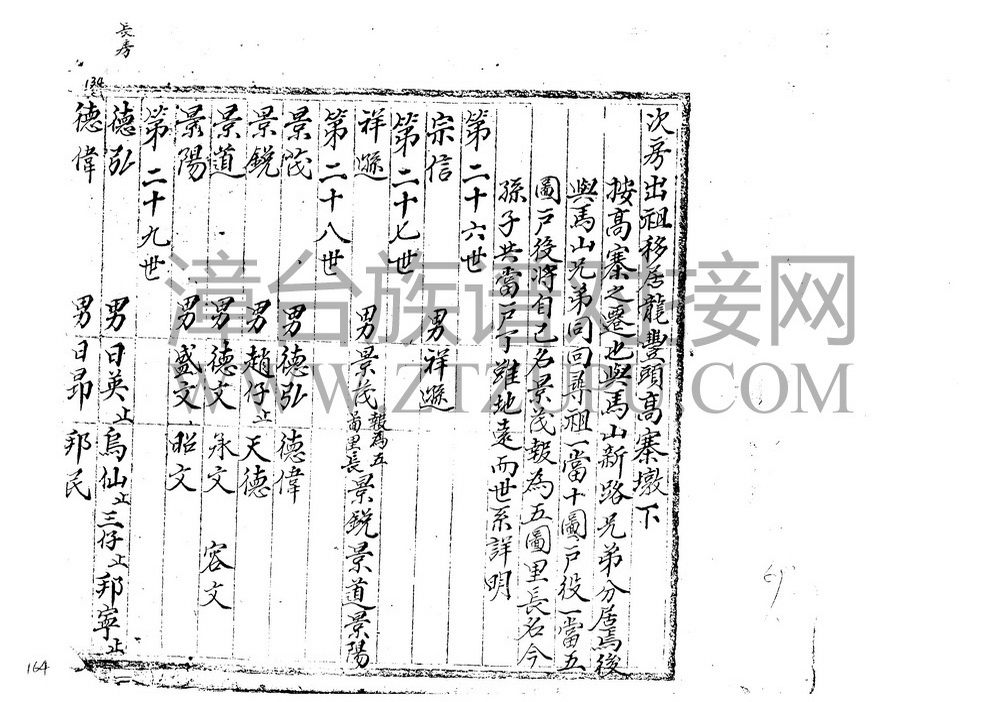 次房出祖移居龍豐頭高寨墩下
按高寨之遷也與馬山新路兄弟分居焉後
與馬山兄弟同回尋祖一當十圖戶役一當五
圖戶後將自己名景茂報為五圖里長名今
孫子共當戶丁雖地遠而世系詳明
第二十六世
宗信 男祥遜
第二十七世
祥遜 男景茂報為五啚里長景銳景道景陽
第二十八世
景茂 男德弘 德偉
景銳 男趙仔止天德
景道 男德文 永文 容文
景陽 男盛文 昭文
第二十九世
德弘 男日英止烏仙止三仔止邦寧止
德偉 男日昂 邦民
長房
134
164
漳台族谱对接网
WWW.ZTZUPU.COM